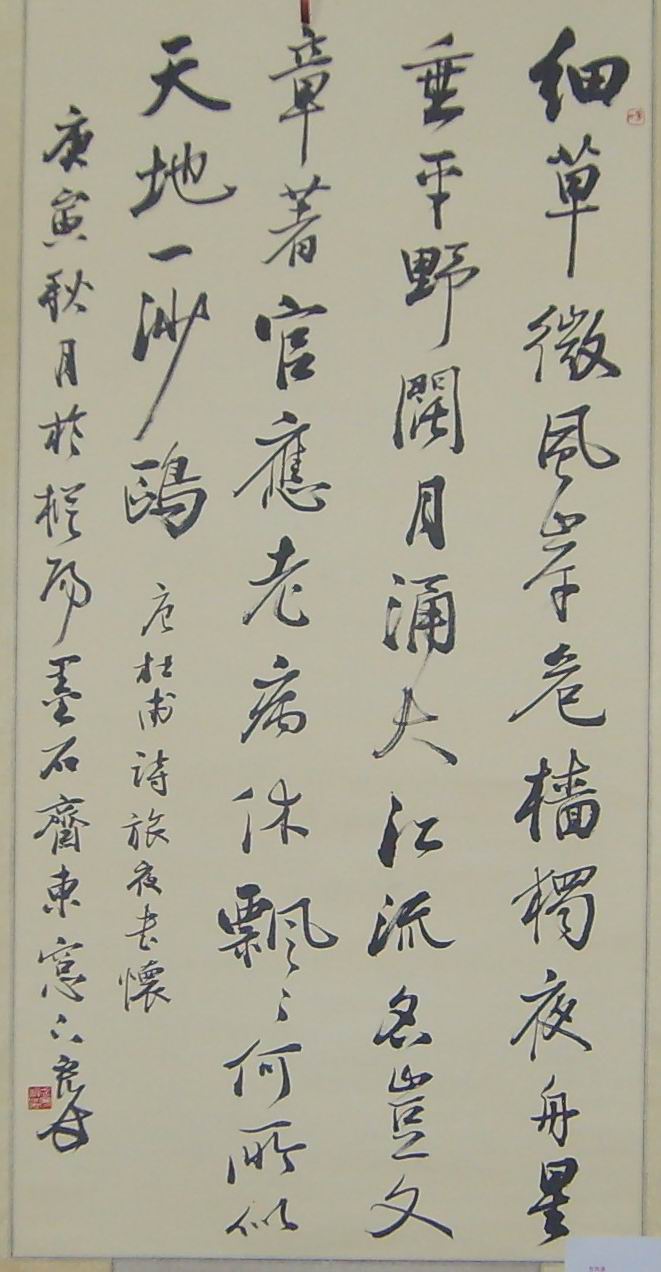 細草微風岸危檣獨夜舟星
垂平野闊月涌大江流名豈文
章著官應老病休飄〻何所似
天地一沙鷗 唐杜甫詩旅夜書懷
庚寅秋月於樅陽墨石齋東窓下